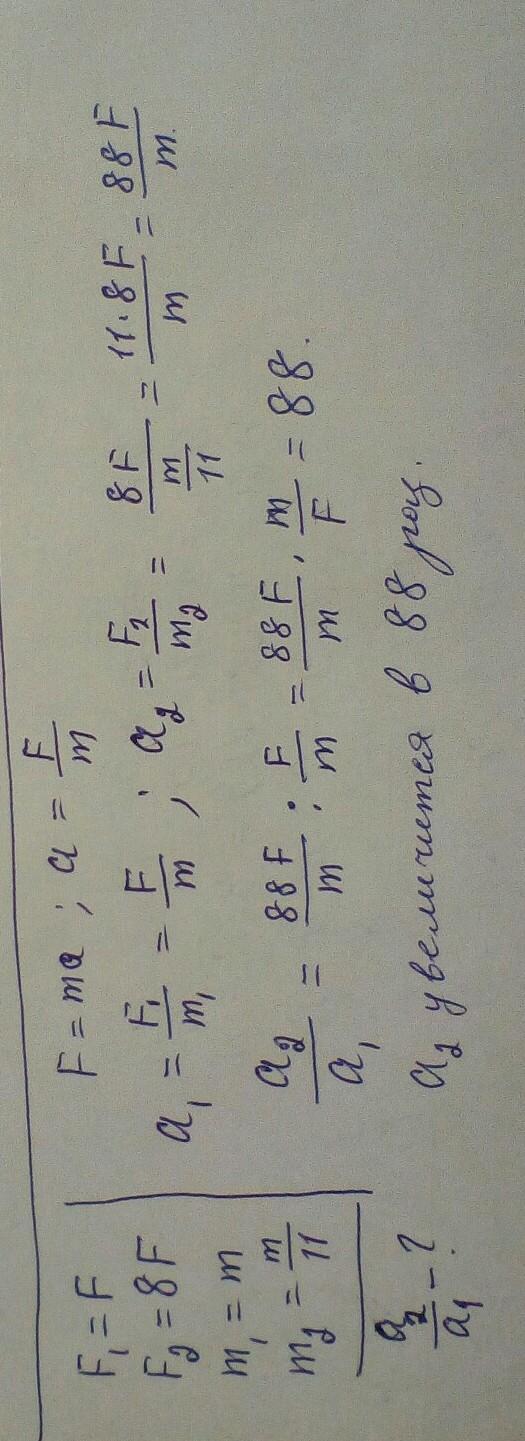 F₁ = F
F₂ = 8F
m₁ = m
m₂ = m/11
a₂/a₁ - ?
F = ma ; a = F/m
a₁ = F₁/m₁ = F/m ; a₂ = F₂/m₂ = 8F/(m/11) = 11·8F/m = 88F/m.
a₂/a₁ = 88F/m : F/m = 88F/m · m/F = 88.
a₂ увеличится в 88 раз.